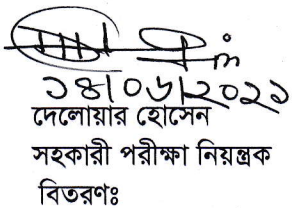 ১৪|০৬|২০২১
দেলোয়ার হোসেন
সহকারী পরীক্ষা নিয়ন্ত্রক
বিতরণঃ